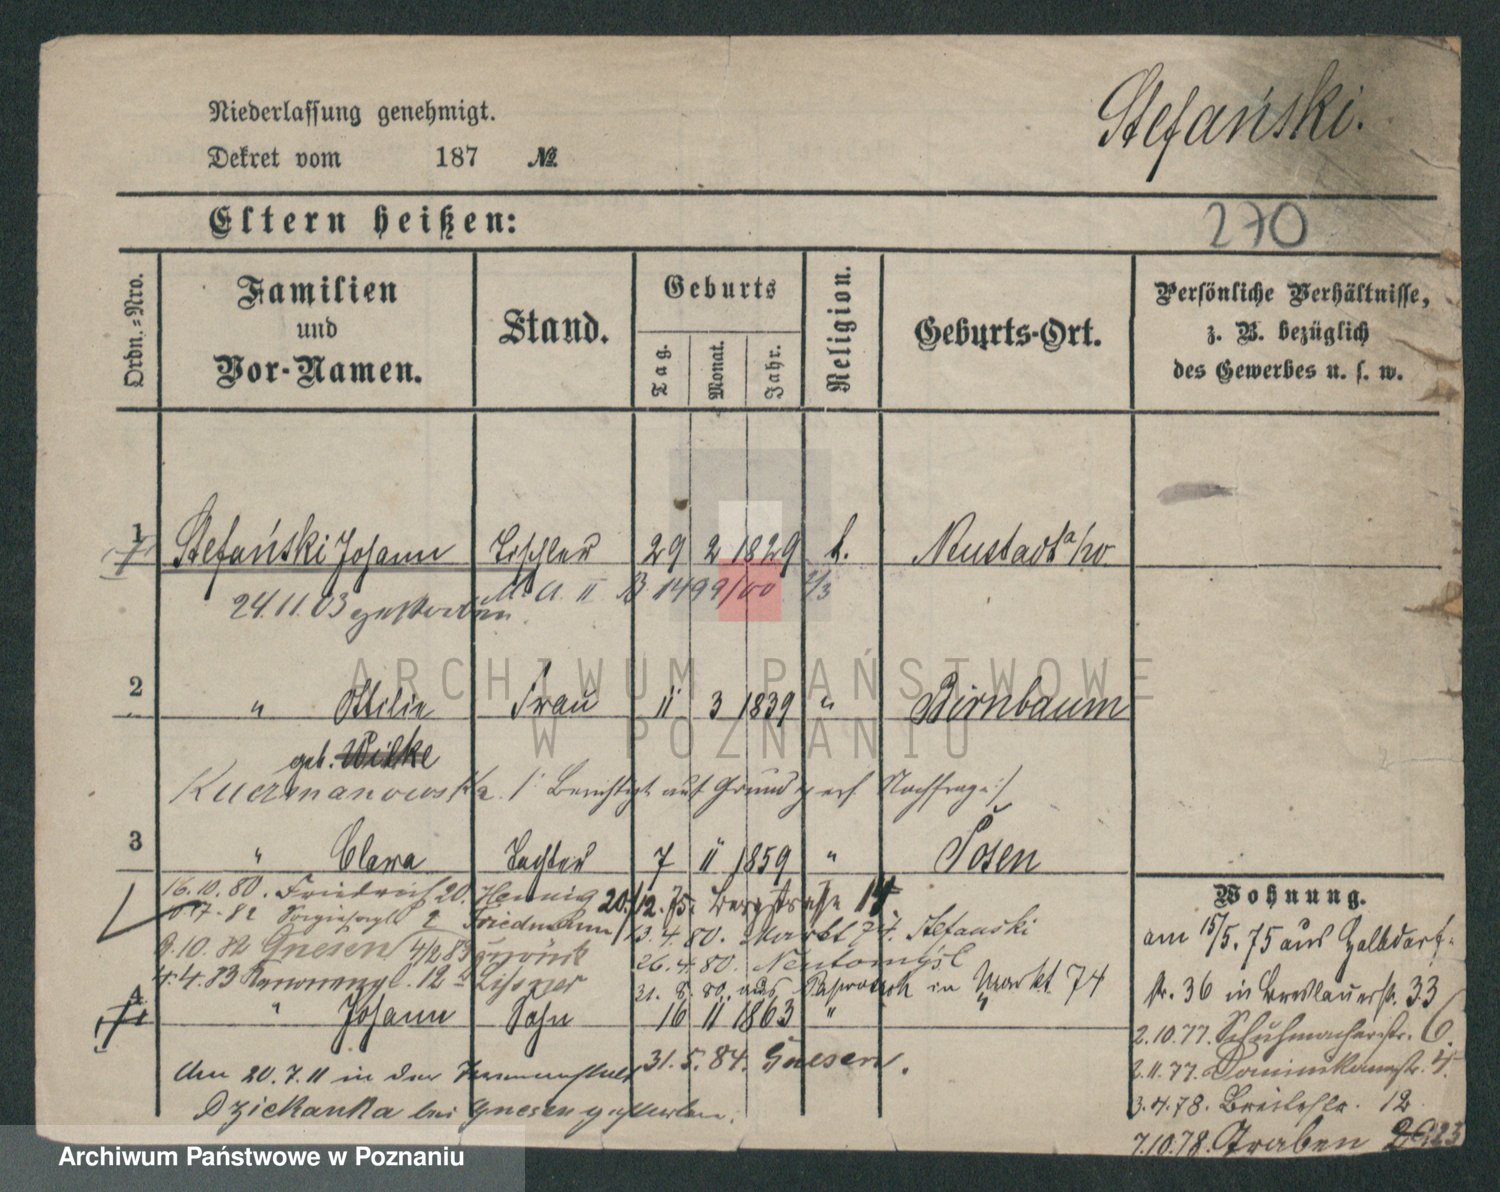 Stefański.
Niederlassung genehmigt.
Dekret vom 187 №
Eltern heißen:
270
Ordn.=Nro.
Familien
und
Vor-Namen.
Stand.
Geburts
Tag.
Monat.
Jahr.
Religion.
Geburts-Ort.
Persönliche Verhältnisse,
z. B. bezüglich
des Gewerbes u. s. w.
1 Stefański Johann Tischler 29 2 1829 k. Neustadt a/W.
24.11.03 gestorben. M. A. II B 1499/00 2/3
ARCHIWUM PAŃSTWOWE
W POZNANIU
2 " Ottilie Frau 11 3 1839 " Birnbaum
geb. Wilke
Kuczmanowska. /: Berichtigt auf Grund Nachfrage :/
3 " Clara Tochter 7 11 1859 " Posen
16.10.80. Friedrich 20. Hennig 20./12.75. Bergstraße 14
7.82 2 Friedmann 13.4.80. Markt 74. Stefanski
9.10.82 Gnesen 4/2 83 zurück 26.4.80. Neutomysl
4.4.83 12 31.8.80. aus in Markt 74
4 " Johann Sohn 16 11 1863 " "
31.5.84. Gnesen.
Am 20.7.11 in der
Dziekanka bei Gnesen gestorben.
Wohnung.
am 15/5.75 aus
str. 36 in Breslauerstr. 33
2.10.77. Schuhmacherstr. 6.
2.11.77. Dominikanerstr. 4.
3.4.78. Breitestr. 12
7.10.78. Graben 23
Archiwum Państwowe w Poznaniu